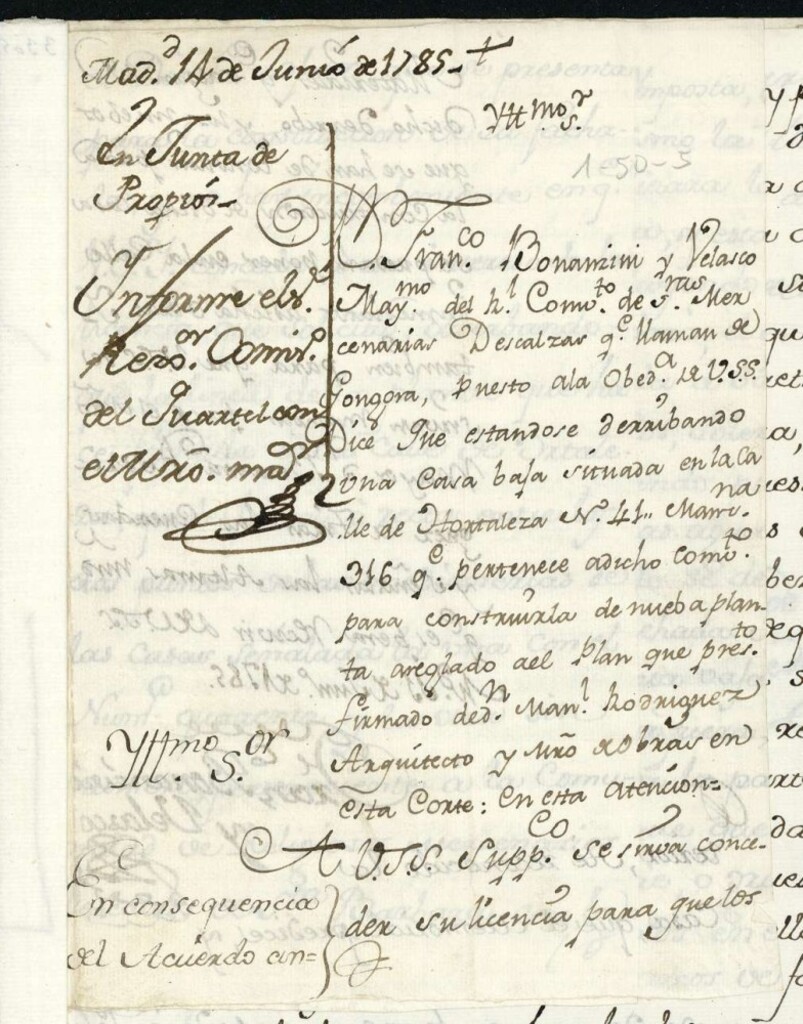 Mad.d 14 de Junio de 1785
En Junta de
Propiós
Ynforme el s.r
Rexo.or Comis.o
del Quartel con
el Mrõ. ma.or
Yllmo s.r
1-50-3
D. Fran.co Bonamini y Velasco
May.mo del R.l Conv.to de s.ras Mer
cenarias Descalzas q.e llaman de
Gongora, Puesto ala Obed.a de V.S.S.
Dice que estandose derribando
una Casa baja situada en la Ca
lle de Hortaleza N.º 41,, Man.na
316 q.e pertenece a dicho Comv.to
para construirla de nueba plan-
ta areglado ael Plan que pres.to
firmado de d.n Man.l Rodriguez
Arquitecto y Mrõ de obras en
esta Corte: En esta atencion=
A V.S.S. Supp.co se sirva conce-
der su licencia para que los
Yllmo. S.or
En consequencia
del Acuerdo an=